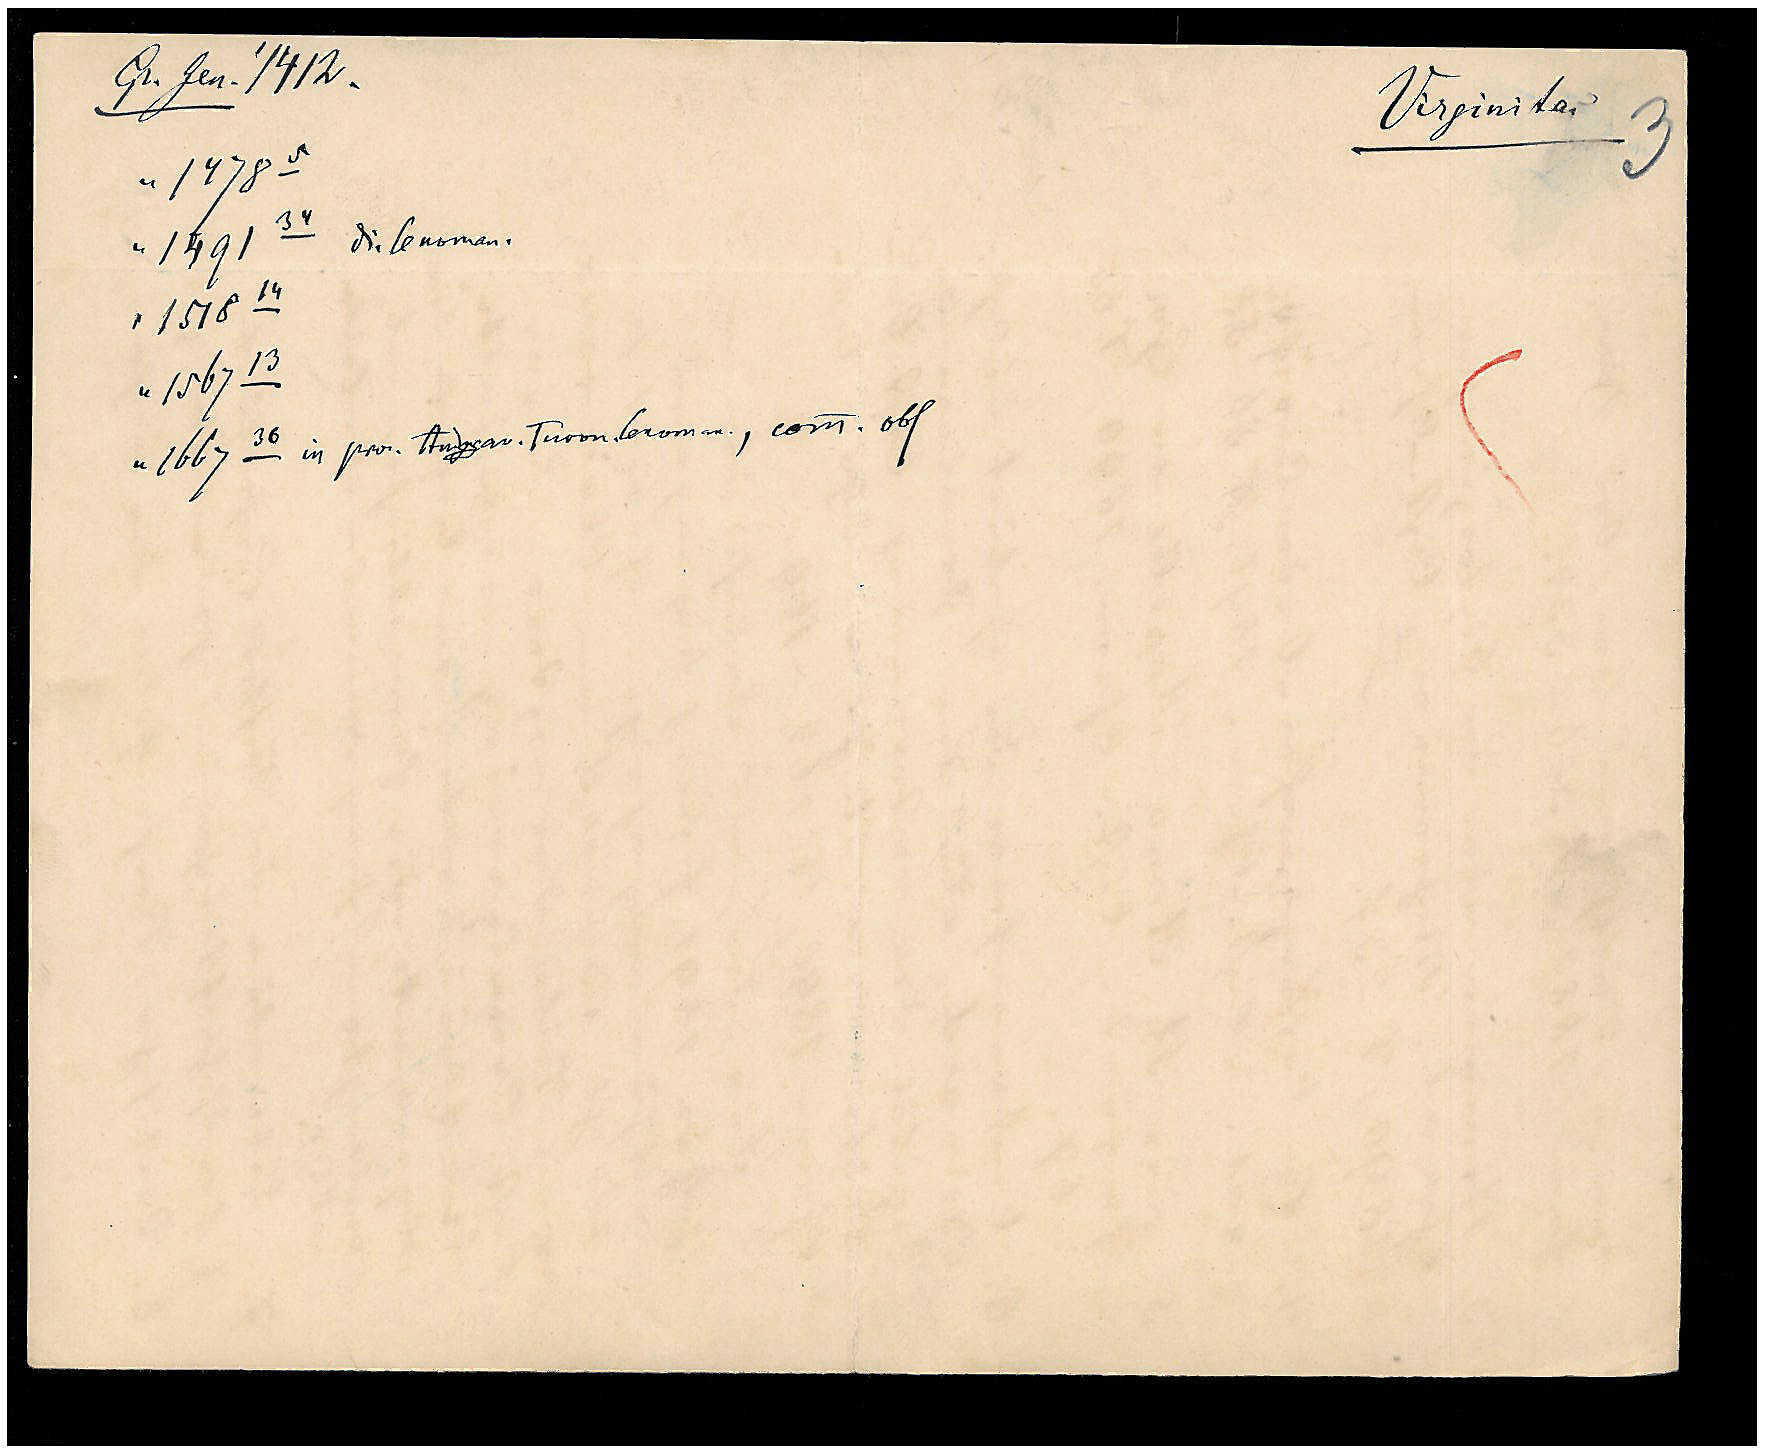 Gr. Jen. 1412.
Virginitas 3
" 1478 5
" 1491 34 di. Cenoman.
" 1518 14
" 1567 13
" 1667 36 in pro. Andegav. Turon. Cenoman., com. obl